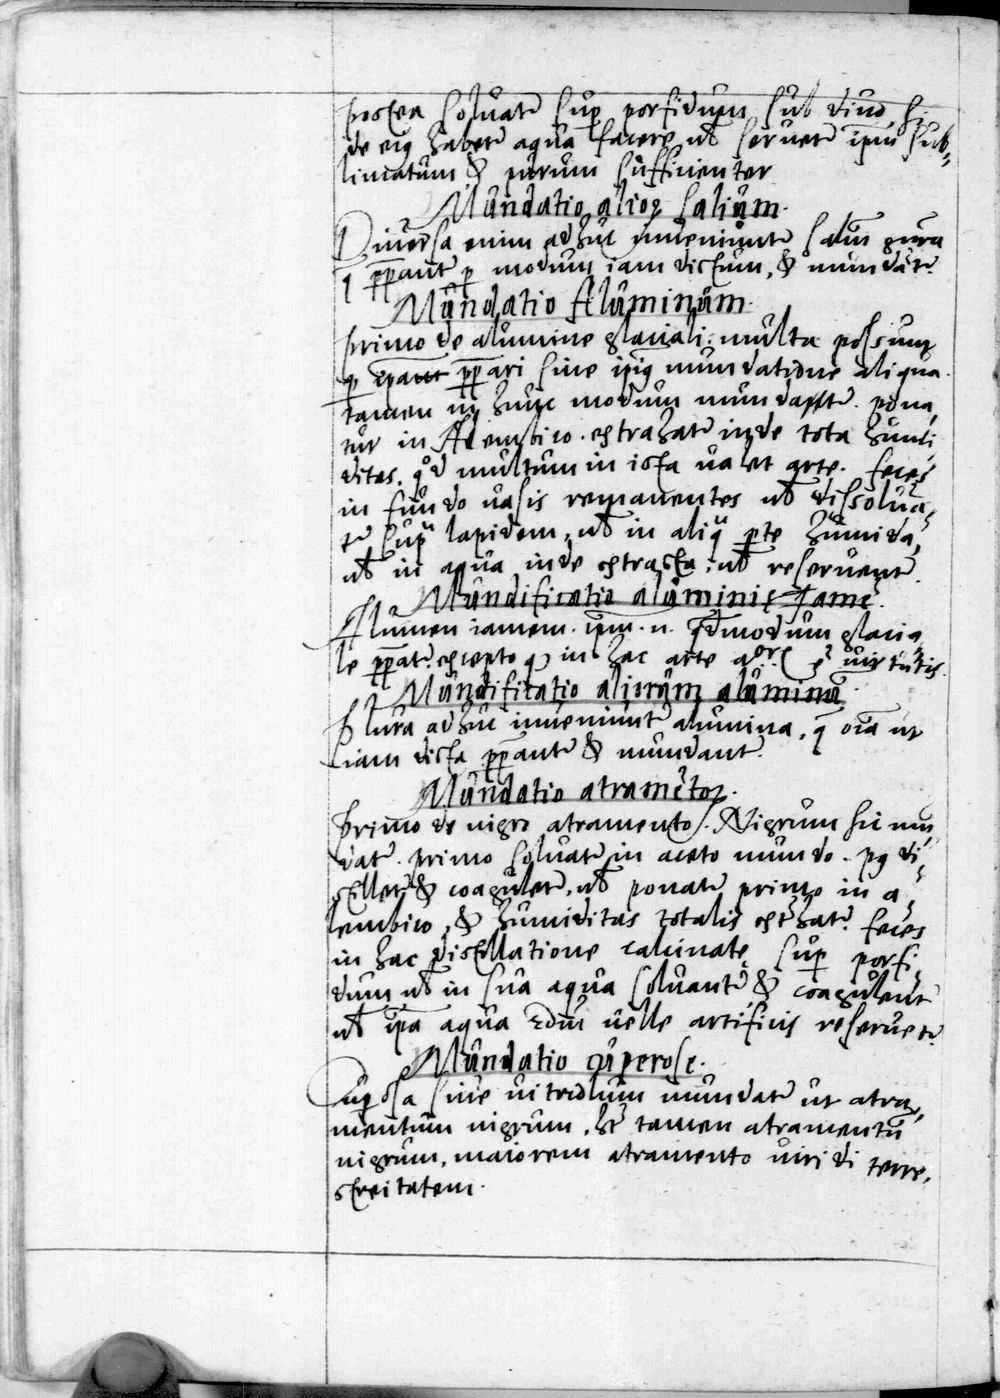 postea soluat̄ sup̄ porfidum sub diuo, si
de eiꝰ habet̄ aqua facere uł seruet̄ ip̄m sub=
limatum & purum sufficienter
Mundatio alioꝝ salium.
Diuersa enim adhuc inueniunt̄ salium genera
q̄ p̄pant̄ ꝑ modum iam dictum, & mundāt̄.
Mundatio Aluminum.
Primo de alumine glaciali: multa possunt
p̄pari sine ipiꝰ mundatione aliqua.
tamen in hunc modum mundat̄. pona,
tur in Alembico. extrahat̄ inde tota humi
ditas. qd̄ multum in ista ualet arte. feces
in fundo uasis remanentes uł dissolua,
t̄ sup̄ lapidem, uł in aliq̄ ꝑte humida,
uł in aqua inde extracta: uł reseruent̄.
Mundificatio aluminis Iameni.
Alumen iamem. ip̄m .n. qdmodum glacia,
le p̄pat̄. excepto ꝙ in hac arte ē uirtutis.
Mundificatio aliorum aluminū
Plura adhuc inueniunt̄ alumina, q̄ oīa ut
iam dicta p̄pant̄ & mundant̄.
Mundatio atramētoꝝ.
Primo de nigro atramento. Nigrum sic mū
dat̄. primo soluat̄ in aceto mundo. pꝰ di,
stillet̄ & coagulet̄, uł ponat̄ primo in a,
lembico, & humiditas totalis ext̄hat̄. feces
in hac distillatione calcinatę sup̄ porfi,
dum uł in sua aqua soluant̄ & coagulent̄
uł ip̄a aqua scdm̄ uelle artificis reseruet̄.
Mundatio cuperose.
Cuꝑosa siue uitriolum mundat̄ ut atra,
mentum nigrum. ht̄ tamen atramentū
nigrum, maiorem atramento uiridi terre,
streitatem.